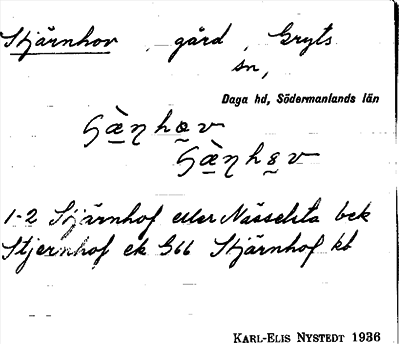 Stjärnhov, gård, Gryts
sn,
Daga hd, Södermanlands län
1-2 Stjärnhof eller Nässelsta bek
Stjernhof ek G66 Stjärnhof kb
KARL-ELIS NYSTEDT 1936